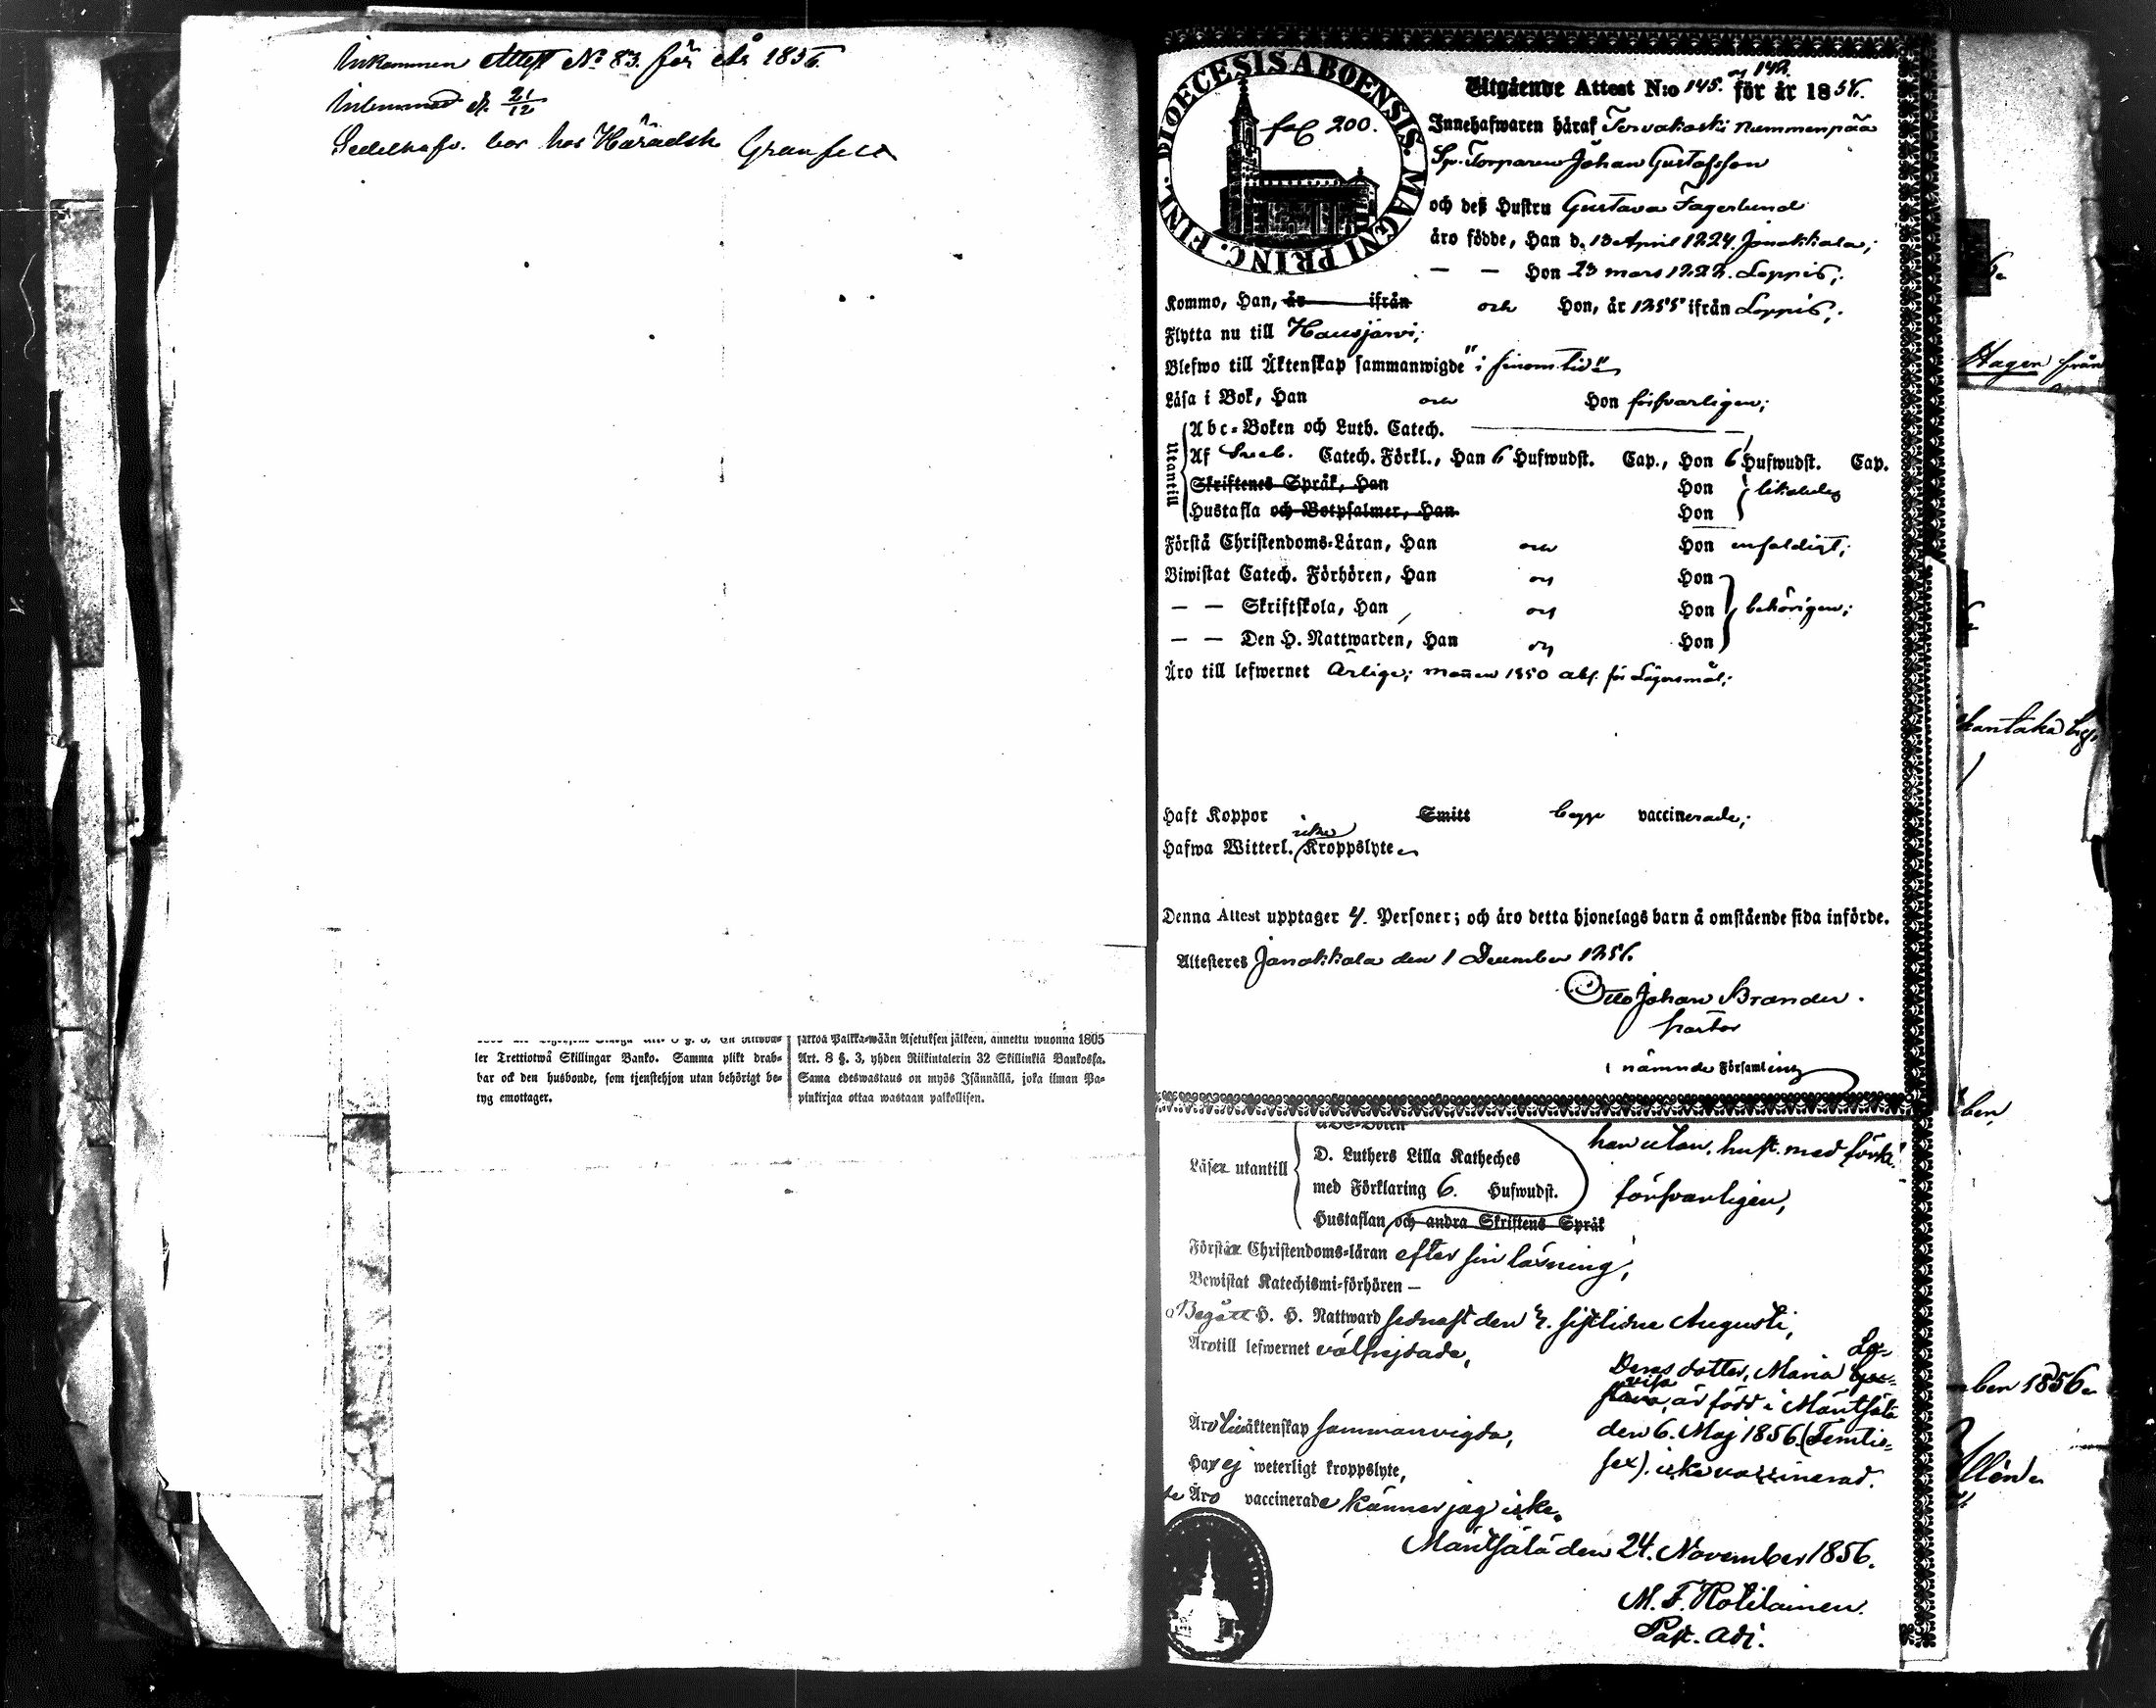 Inkommen Attest No 83. för år 1856.
Inlemnad d. 21/12
Sedelhafv. bor hos Häradsh
1805 Art. 8 §. 3, en Riksda-
ler Trettiotwå Skillingar Banko. Samma plikt drab-
bar ock den husbonde, som tjenstehjon utan behörigt be-
tyg emottager.
Palkka-wään Asetuksen jälkeen, annettu wuonna 1805
Art. 8 §. 3, yhden Riikintalerin 32 Skillinkiä Bankossa.
Sama edeswastaus on myös Isännällä, joka ilman Pa-
pinkirjaa ottaa wastaan palkollisen.
DIOECESIS ABOENSIS. MAGNI PRINC. FINL.
fol 200.
Utgående Attest N:o 145. och 142. för år 1856.
Innehafwaren häraf Tervakoski Nummenpää
Sp. Torparen Johan Gustafsson
och deß Hustru Gustava Fagerlund
äro födde, Han d. 13 April 1824. Janakkala;
— — Hon 23 mars 1822. Loppis;
Kommo, Han, år ifrån och Hon, år 1855 ifrån Loppis;
Flytta nu till Hausjärvi;
Blefwo till Äktenskap sammanwigde "i sinom tid"
Läsa i Bok, Han och Hon försvarligen;
Utantill
Abc-Boken och Luth. Catech.
Af Sveb. Catech. Förkl., Han 6 Hufwudst. Cap., Hon 6 Hufwudst. Cap.
Skriftenes Språk, Han Hon likaledes
Hustafla och Botpsalmer, Han Hon
Förstå Christendoms-Läran, Han och Hon enfaldigt;
Biwistat Catech. Förhören, Han och Hon
— — Skriftskola, Han och Hon behörigen;
— — Den H. Nattwarden, Han och Hon
Äro till lefwernet Ärlige; mannen 1850 abs. för Lägersmål;
Haft Koppor Smitt begge vaccinerade;
Hafwa Witterl. icke Kroppslyte
Denna Attest upptager 4. Personer; och äro detta hjonelags barn å omstående sida införde.
Attesteres Janakkala den 1 December 1856.
Otto Johan Brander.
Pastor
i nämnde Församling
ABC-Boken
Läser utantill
D. Luthers Lilla Katheches
med Förklaring 6. Hufwudst.
Hustaflan och andra Skriftens Språk
han utan, hust. med förkl.
försvarligen,
Förstår Christendoms-läran efter sin läsning,
Bewistat Katechismi-förhören —
Begått H. H. Nattward sednast den 4. sistlidne Augusti,
Äro till lefwernet välfrejdade,
Deras dotter, Maria Lo-
visa, är född i Mäntsälä
den 6. Maj 1856.(Femtio-
sex). icke vaccinerad.
Äro i äktenskap sammanvigda,
Har ej weterligt kroppslyte,
Äro vaccinerade känner jag icke.
Mäntsälä den 24. November 1856.
M. F. Rotilainen.
Past. Adj.
Hagen från
ben
ben 1856